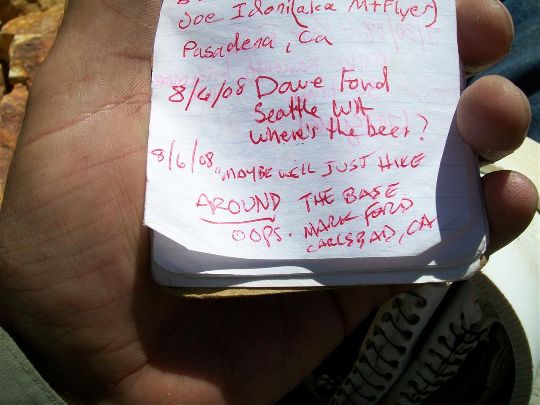 Joe Idoni (aka Mt Flyer)
Pasadena, Ca
8/6/08 Dave Ford
Seattle WA
where's the beer?
8/6/08 "MAYBE WE'LL JUST HIKE
AROUND THE BASE
OOPS. MARK FORD
CARLSBAD, CA